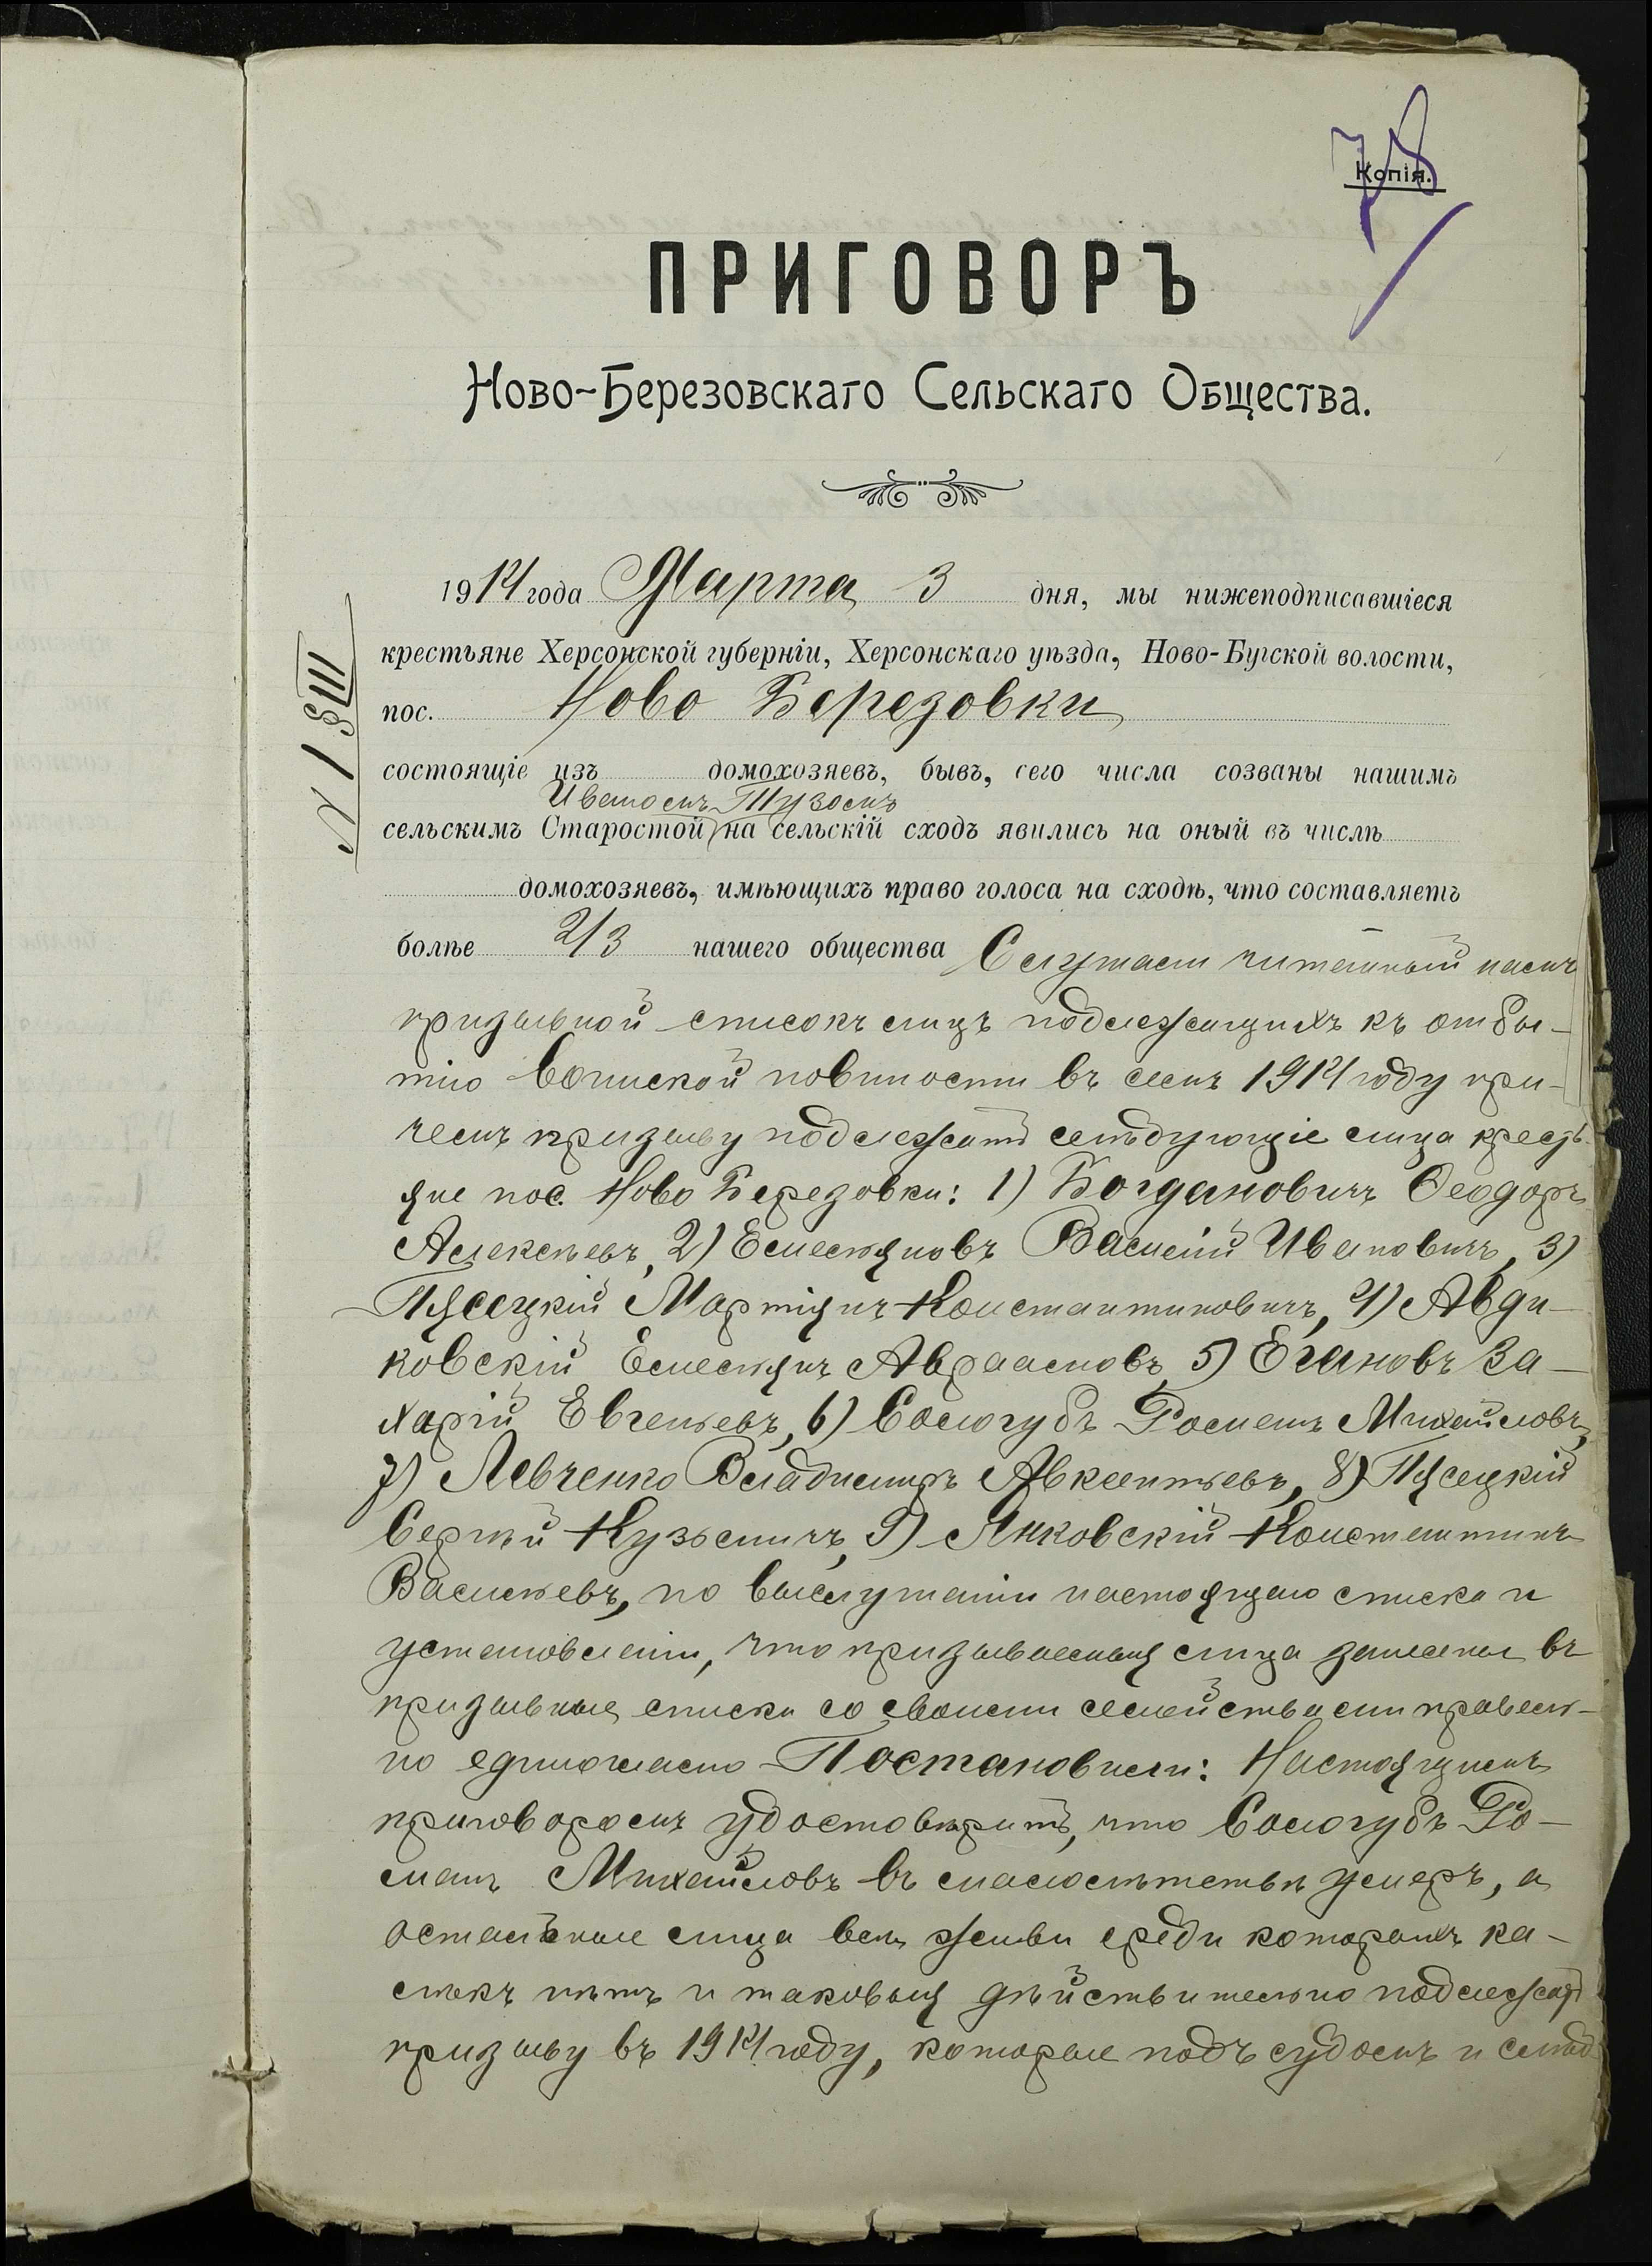 78
Копія.
ПРИГОВОРЪ
Ново-Березовскаго Сельскаго Общества.
№ 1 § III
1914 года Марта 3 дня, мы нижеподписавшіеся
крестьяне Херсонской губерніи, Херсонскаго уѣзда, Ново-Бугской волости,
пос. Ново Березовки
состоящіе изъ домохозяевъ, бывъ, сего числа созваны нашимъ
Иваномъ Тузомъ
сельскимъ Старостой на сельскій сходъ явились на оный въ числѣ
домохозяевъ, имѣющихъ право голоса на сходѣ, что составляетъ
болѣе 2/3 нашего общества Слушали читанный намъ
призывной списокъ лицъ подлежащихъ къ отбы-
тію воинской повинности въ семъ 1914 году при-
чемъ призыву подлежатъ слѣдующіе лица кресть-
яне пос. Ново Березовки: 1) Богдановичъ Ѳеодоръ
Алексѣевъ, 2) Емельяновъ Василій Ивановичъ, 3)
Пясецкій Мартіянъ Константиновичъ, 4) Авди-
ковскій Емельянъ Авраамовъ, 5) Егановъ За-
харій Евгеньевъ, 6) Сологубъ Романъ Михайловъ,
7) Левченко Владимиръ Авксентьевъ, 8) Пясецкій
Сергѣй Кузьмичъ, 9) Янковскій Константинъ
Васильевъ, по выслушаніи настоящаго списка и
установленіи, что призываемыя лица занесены въ
призывные списки со своими семействами правиль-
но единогласно Постановили: Настоящимъ
приговоромъ удостовѣрить, что Сологубъ Ро-
манъ Михайловъ въ малолѣтствѣ умеръ, а
остальные лица всѣ живы среди которыхъ ка-
лѣкъ нѣтъ и таковыя дѣйствительно подлежатъ
призыву въ 1914 году, которые подъ судомъ и слѣд